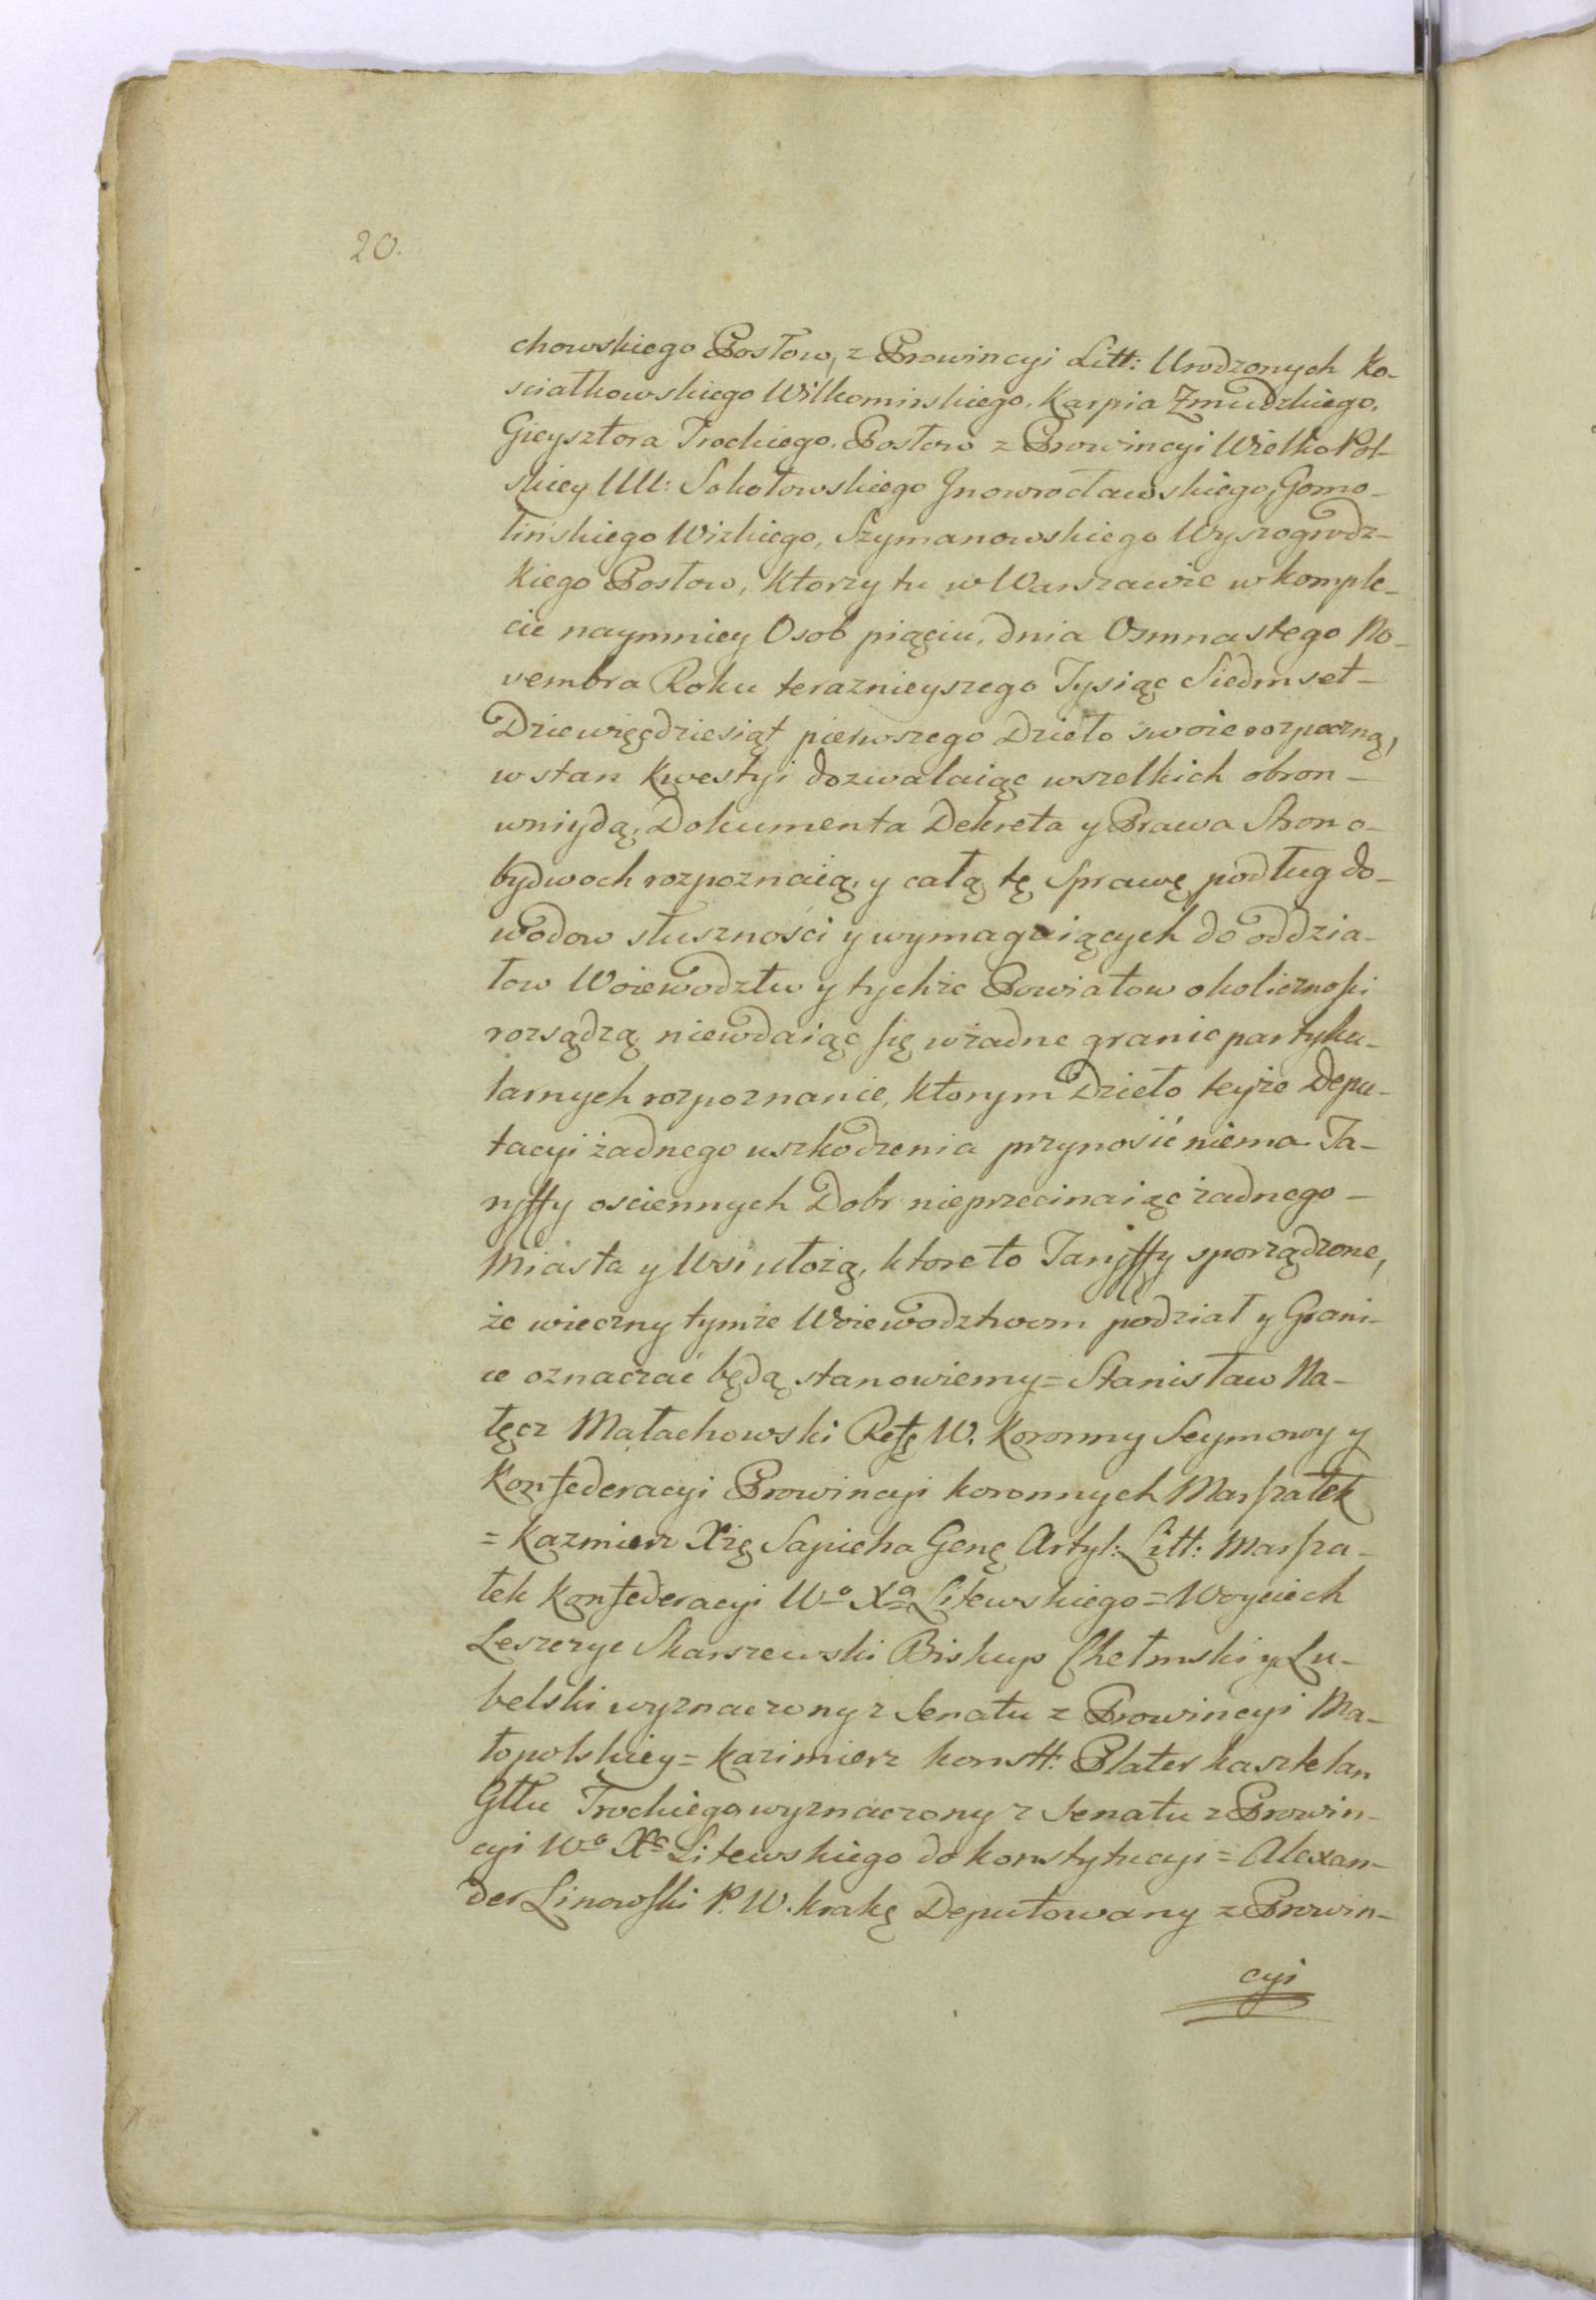 20.
chowskiego Posłow, z Prowincyi Litt: Urodzonych Ko-
sciałkowskiego Wilkomirskiego, Karpia Zmudzkiego,
Gieysztora Trockiego. Posłow z Prowincyi Wielko Pol-
skiey UU: Sokołowskiego Jnowrocławskiego, Gomo-
lińskiego Wizkiego, Szymanowskiego Wyszogrodz-
kiego Posłow, Ktorzy tu w Warszawie w komple-
cie naymniey Osob pięciu, dnia Osmnastego No-
vembra Roku teraznieyszego Tysiąc Siedmset-
Dziewięćdziesiąt pierwszego Dzieło swoie rozpoczną,
w stan kwestyi dozwalaiąc wszelkich obron-
wniydą, Dokumenta Dekreta y Prawa Stron o-
bydwoch rozpoznaią, y całą tę Sprawę podług do-
wodow słuszności y wymagaiących do oddzia-
łow Woiewodztw y tychże Powiatow okolicznosci
rozsądzą, niewdaiąc się w żadne granic partyku-
larnych rozpoznanie, ktorym Dzieło teyże Depu-
tacyi żadnego uszkodzenia przynosić niema. Ta-
ryffy osciennych Dobr nieprzecinaiąc żadnego-
Miasta y Wsi ułożą, ktore to Taryffy sporządzone,
że wieczny tymże Woiewodztwom podział y Grani-
ce oznaczać będą stanowiemy = Stanisław Na-
łęcz Małachowski Refę W. Koronny Seymowy y
Konfederacyi Prowincyi koronnych Marszałek
= Kazmierz Xżę Sapieha Genę Artyl: Litt: Marsza-
łek Konfederacyi Wo Xa Litewskiego = Woyciech
Leszczyc Skarszewski Biskup Chełmski y Lu-
belski wyznaczony z Senatu z Prowincyi Ma-
łopolskiey = Kazimierz konstt: Plater kasztelan
Gttu Trockiego wyznaczony z Senatu z Prowin-
cyi Wo Xa Litewskiego do konstytucyi = Alexan-
der Linowski P. W. krakę Deputowany z Prowin-
cyi